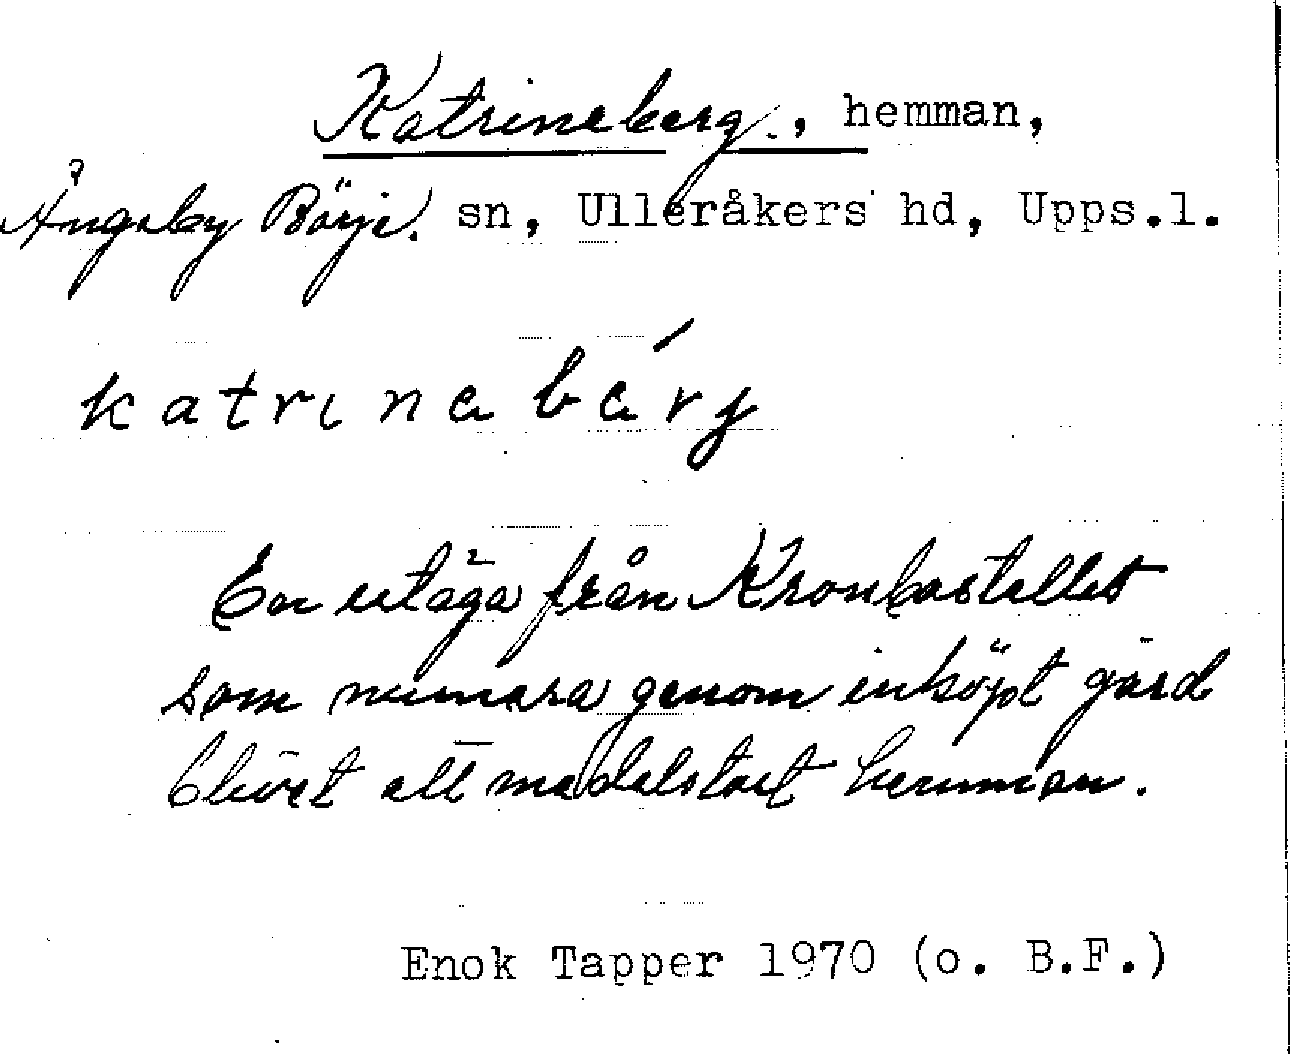 Katrineberg., hemman,
Ängeby Börje. sn, Ulleråkers hd, Upps.l.
katrinabárj
En utäga från Kronbostället
som numera genom inköpt gård
blivet ett medelstort hemman.
Enok Tapper 1970 (o. B.F.)